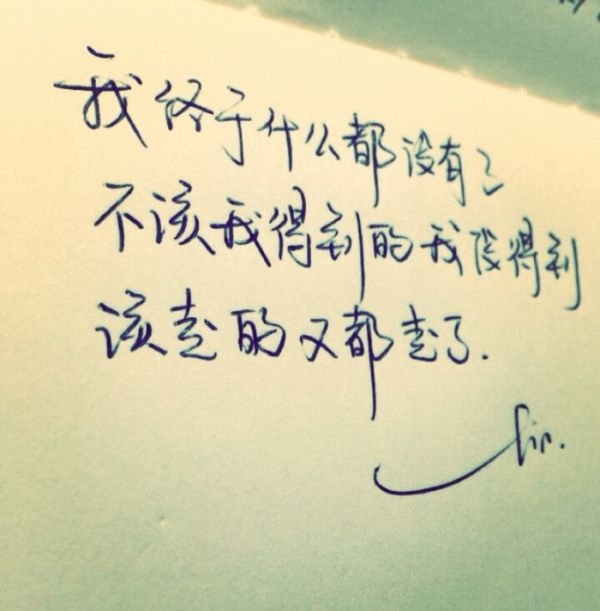 我终于什么都没有了
不该我得到的我没得到
该走的又都走了.
fin.